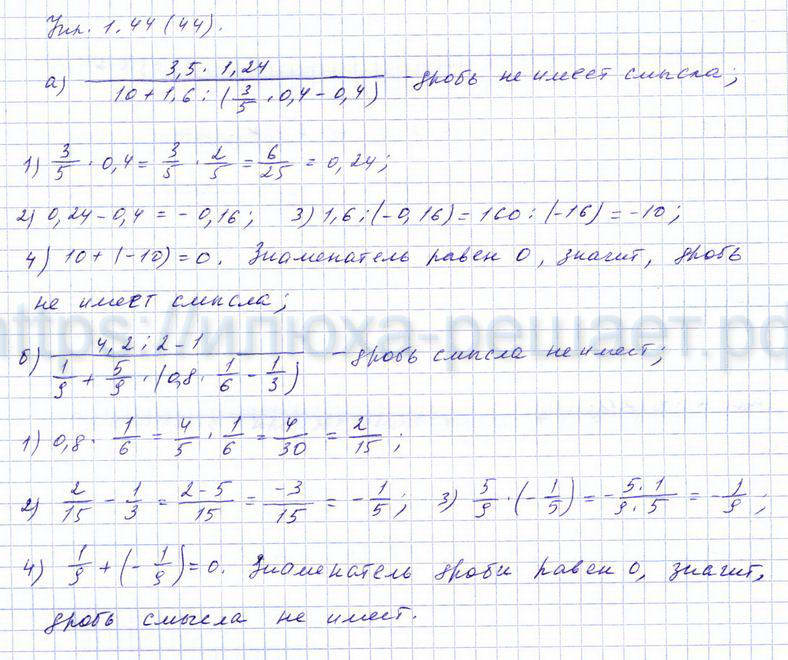 Упр. 1.44 (44).
а) 3,5 · 1,24 / 10 + 1,6 : (3/5 · 0,4 - 0,4) - дробь не имеет смысла;
1) 3/5 · 0,4 = 3/5 · 2/5 = 6/25 = 0,24;
2) 0,24 - 0,4 = - 0,16; 3) 1,6 : (- 0,16) = 160 : (-16) = -10;
4) 10 + (-10) = 0. Знаменатель равен 0, значит, дробь
не имеет смысла;
https://илюха-решает.рф
б) 4,2 : 2 - 1 / 1/9 + 5/9 · (0,8 · 1/6 - 1/3) - дробь смысла не имеет;
1) 0,8 · 1/6 = 4/5 · 1/6 = 4/30 = 2/15;
2) 2/15 - 1/3 = 2-5/15 = -3/15 = - 1/5; 3) 5/9 · (- 1/5) = - 5·1/9·5 = - 1/9;
4) 1/9 + (- 1/9) = 0. Знаменатель дроби равен 0, значит,
дробь смысла не имеет.